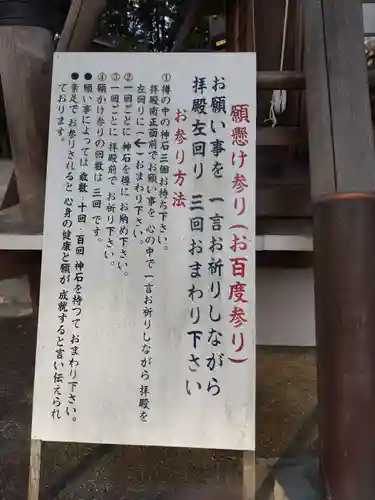 願懸け参り(お百度参り)
お願い事を 一言お祈りしながら
拝殿左回り 三回おまわり下さい
お参り方法
①樽の中の神石三個お持ち下さい。
拝殿南正面前でお願い事を 心の中で一言お祈りしながら 拝殿を
左回りに(←)おまわり下さい。
②一回ごとに 神石を樽に お納め下さい。
③一回ごとに 拝殿前で お祈り下さい。
④願かけ参りの回数は 三回 です。
●願い事によっては 歳数・十回・百回 神石を持つて おまわり下さい。
●素足でお参りされると 心身の健康と願が 成就すると言い伝えられ
ております。